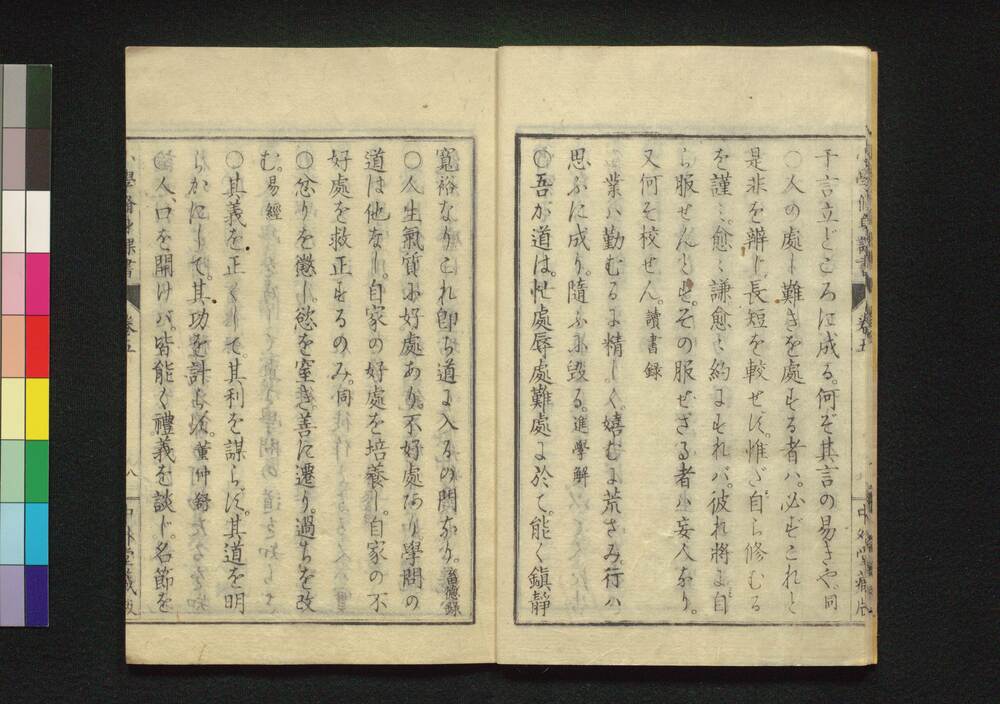 千言立どころに成る。何ぞ其言の易きや。同
〇人の處し難きを處する者ハ。必ずこれと
是非を辨じ。長短を較せず。惟だ自ら修むる
を謹ミ。愈〻謙愈〻約にすれバ。彼れ將に自
ら服せんとす。その服せざる者ハ妄人なり。
又何そ校せん。讀書録
〇業ハ勤むるに精しく。嬉むに荒さみ。行ハ
思ふに成り。隨ふに毀る。進學解
〇吾が道は。忙處辱處難處に於て。能く鎭靜
寛裕なり。これ即ち道に入るの關なり。畜德録
〇人生氣質に好處あり。不好處あり。學問の
道は他なし。自家の好處を培養し。自家の不
好處を救正するのみ。同
〇忿りを懲し。慾を窒き。善に遷り。過ちを改
む。易經
〇其義を正くして。其利を謀らず。其道を明
らかにして。其功を計らず。董仲舒
〇人口を開けバ。皆能く禮義を談じ。名節を
小學脩身課書 卷五 八 中外堂藏版